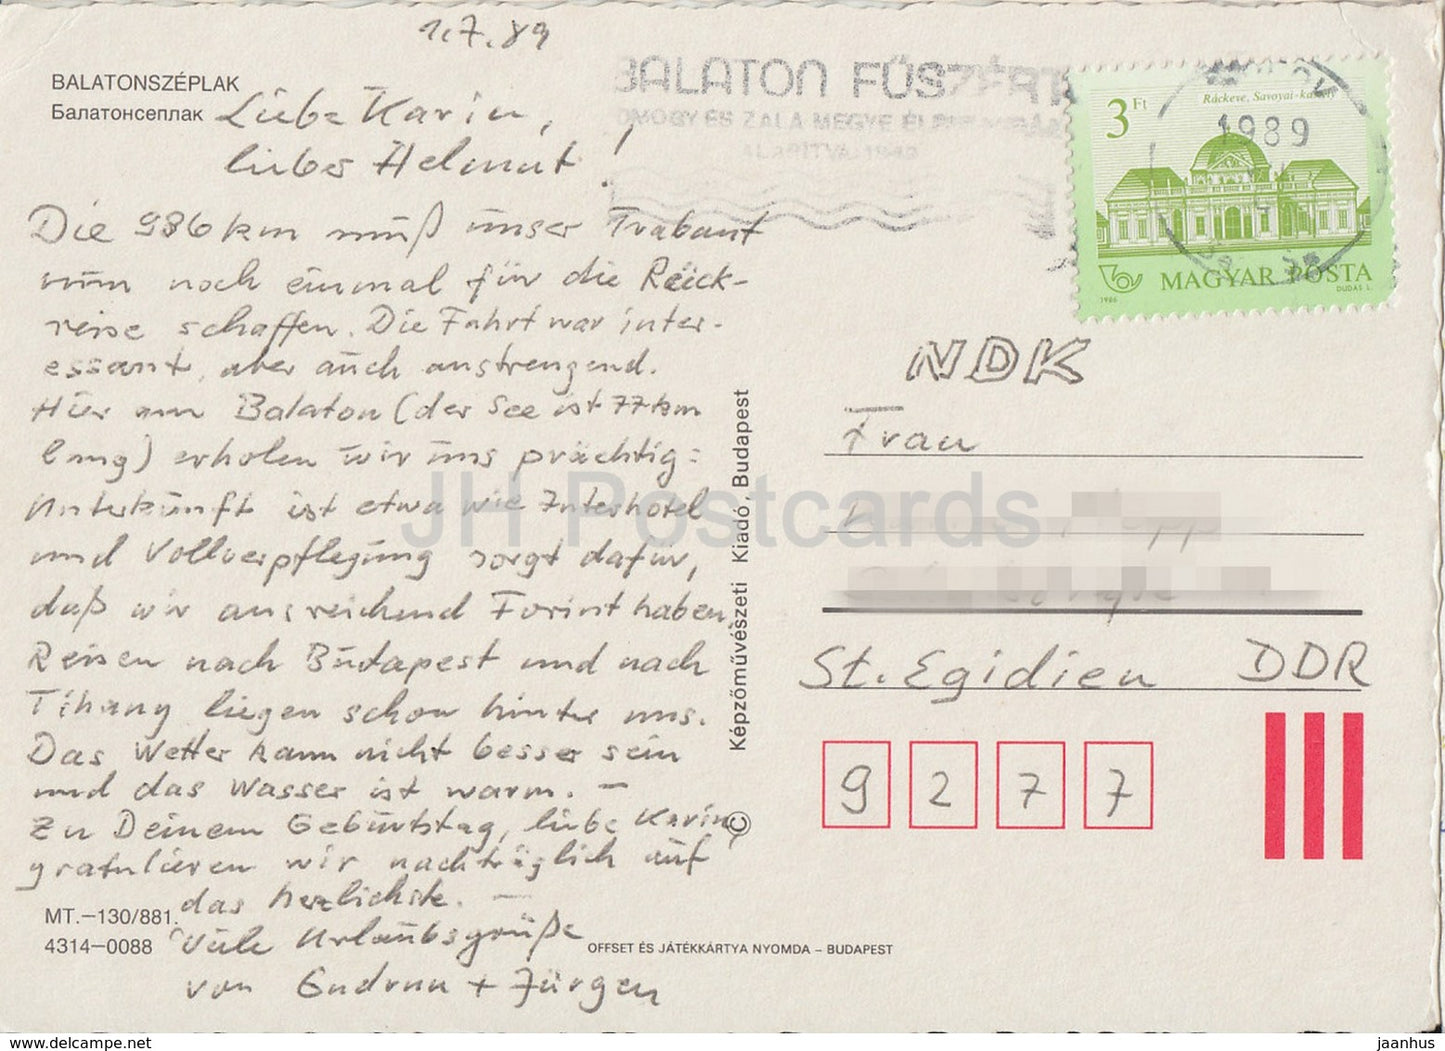 1.7.89
BALATONSZÉPLAK
Балатонсеплак
Liebe Karin,
lieber Helmut!
Die 986 km muß unser Trabant
nun noch einmal für die Rück-
reise schaffen. Die Fahrt war inter-
essant, aber auch anstrengend.
Hier am Balaton (der See ist 77 km
lang) erholen wir uns prächtig:
Unterkunft ist etwa wie Interhotel
und Vollverpflegung sorgt dafür,
daß wir ausreichend Forint haben.
Reisen nach Budapest und nach
Tihany liegen schon hinter uns.
Das Wetter kann nicht besser sein
und das Wasser ist warm. –
Zu Deinem Geburtstag, liebe Karin,
gratulieren wir nachträglich auf
das herzlichste. –
Viele Urlaubsgrüße
von Gudrun + Jürgen
MT.–130/881.
4314–0088
OFFSET ÉS JÁTÉKKÁRTYA NYOMDA – BUDAPEST
© Képzőművészeti Kiadó, Budapest
BALATON FŰSZÉRT
SOMOGY ÉS ZALA MEGYE
ALAPÍTVA
1989
3 Ft
Ráckeve, Savoyai-kastély
MAGYAR POSTA
1986
DUDÁS L.
NDK
Frau
St. Egidien DDR
9 2 7 7
JH Postcards
https://jhpostcards.net
jaanhus